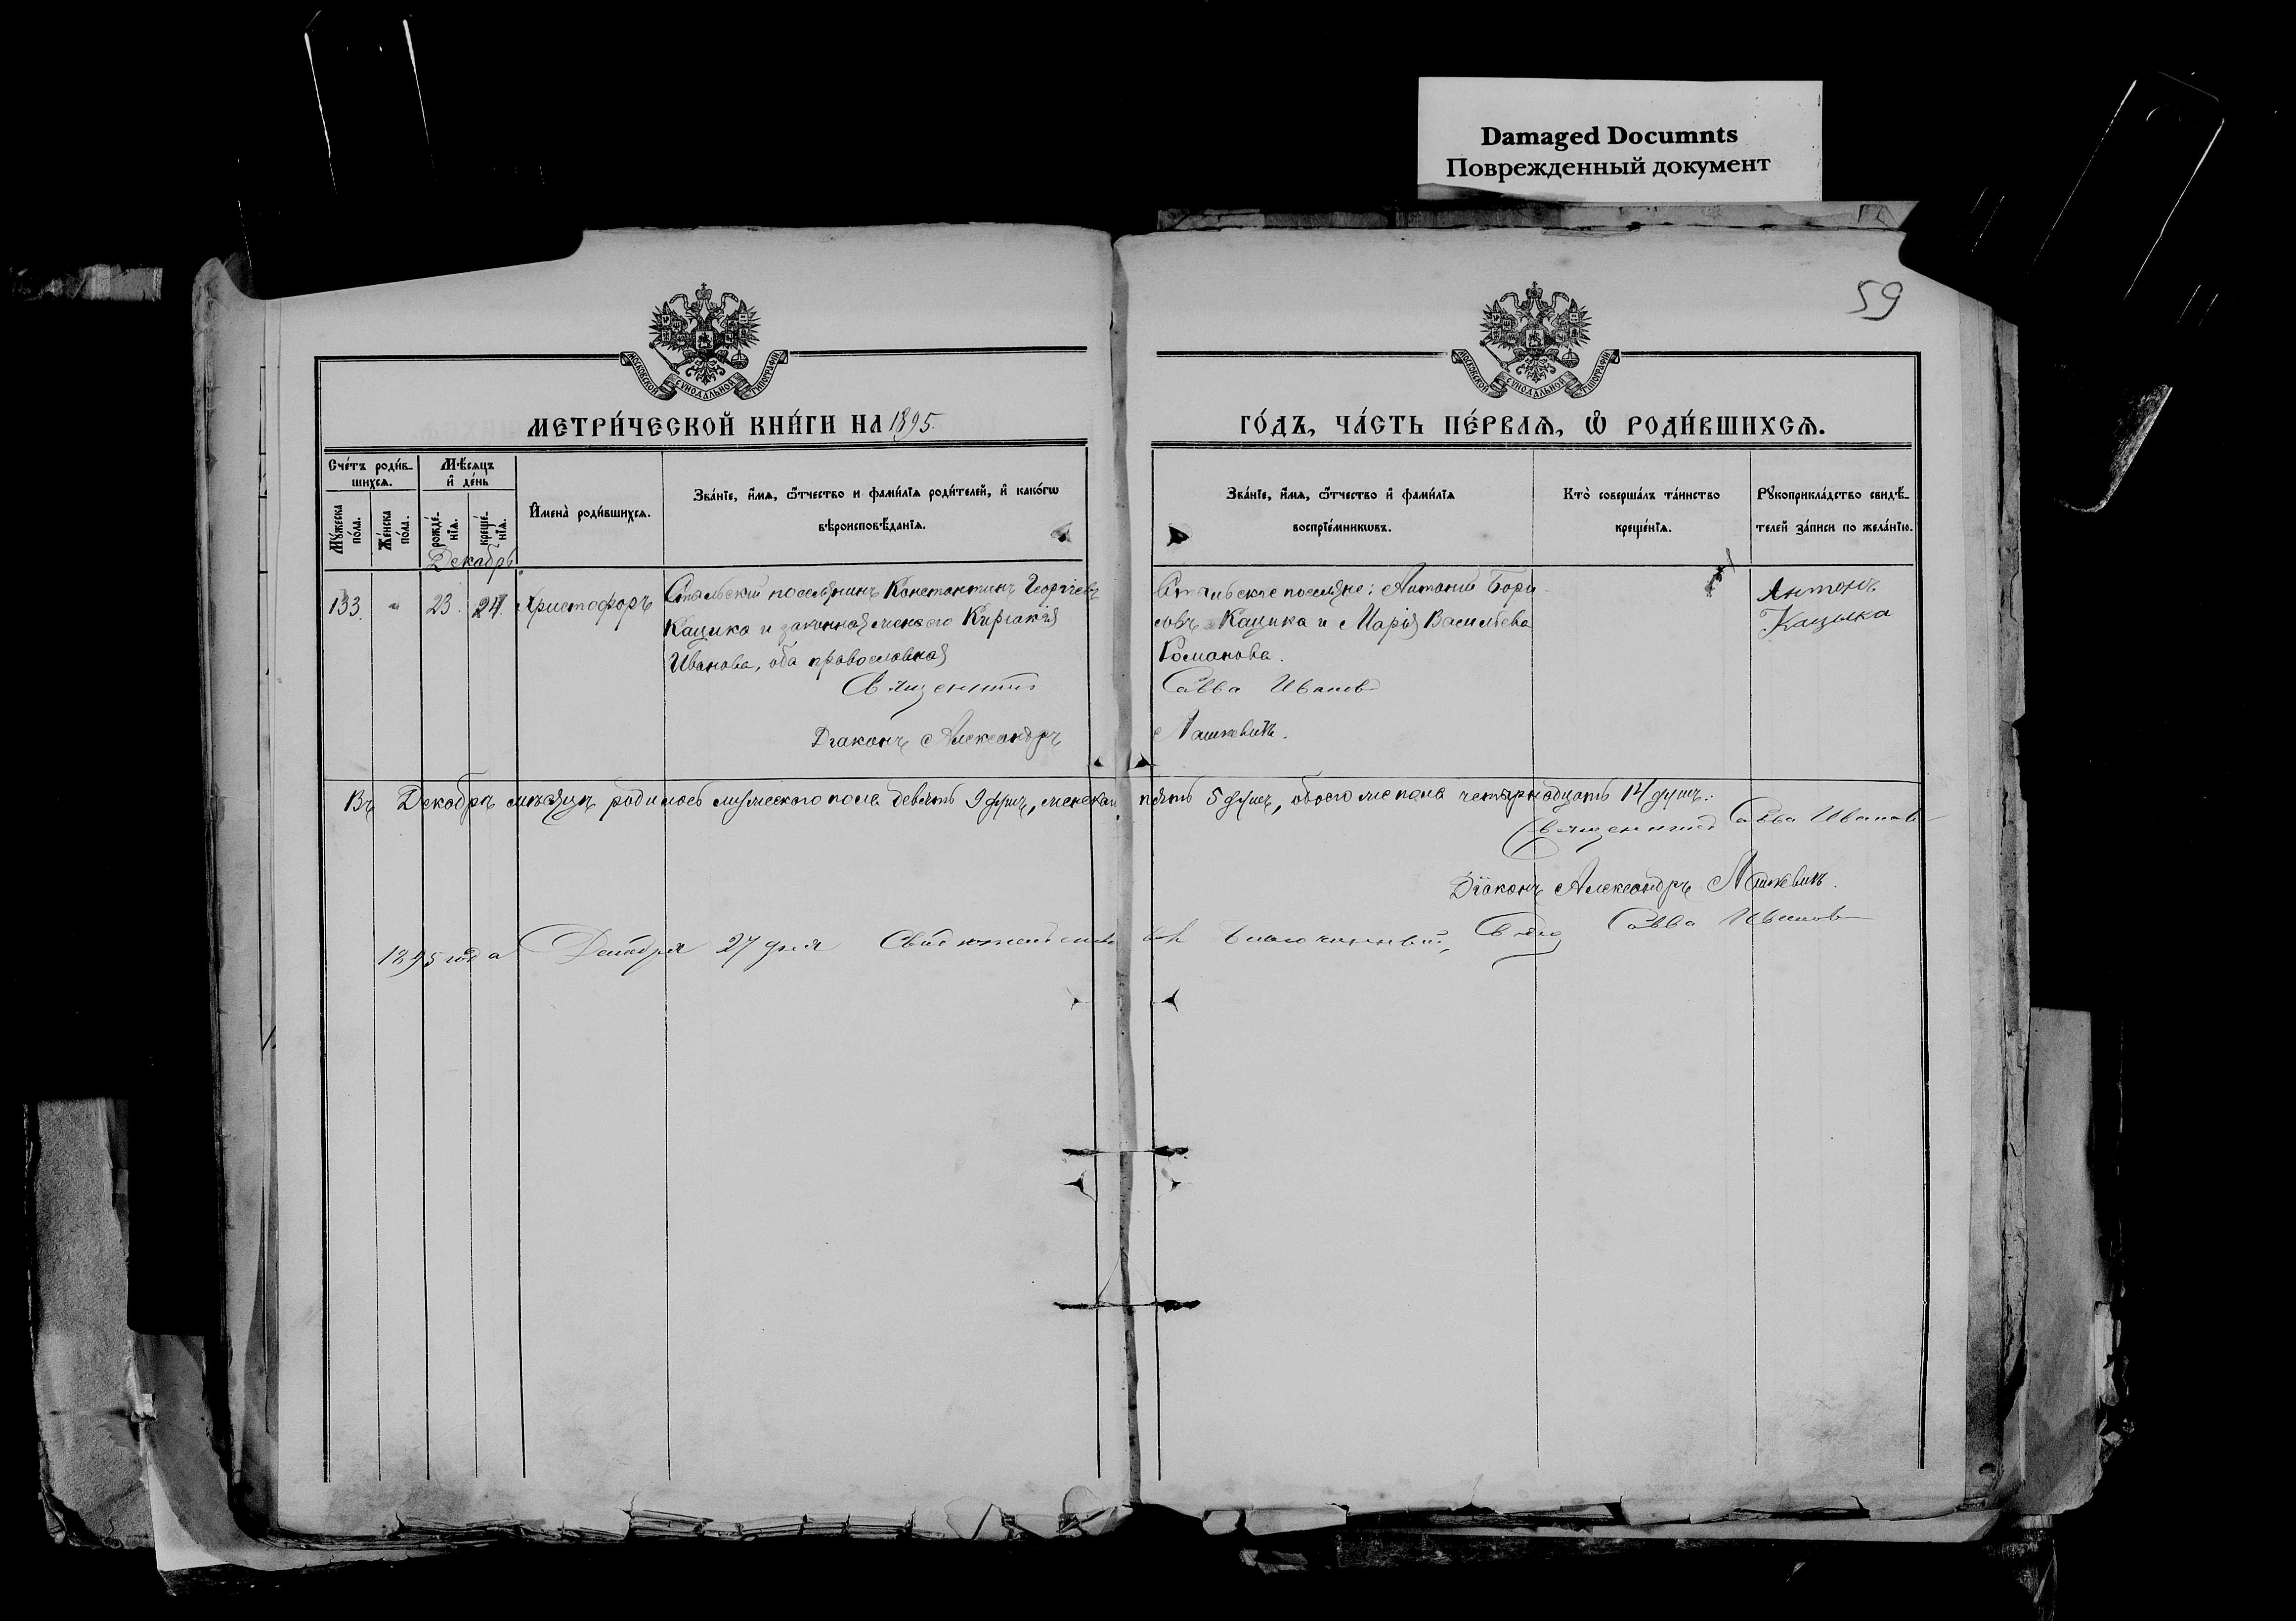 Damaged Documnts
Поврежденный документ
59
МОСКОВСКОЙ СѴНОДАЛЬНОЙ ТИПОГРАФІИ
МОСКОВСКОЙ СѴНОДАЛЬНОЙ ТИПОГРАФІИ
МЕТРИ́ЧЕСКОЙ КНИ́ГИ НА 1895.
ГО́ДЪ, ЧА́СТЬ ПЕ́РВАѦ, Ѡ҆ РОДИ́ВШИХСѦ.
Сче́тъ роди́в-
шихсѧ.
Мꙋ́жеска по́ла.
Же́нска по́ла.
Мѣ́сѧцъ
и҆ де́нь
рожде́-
нїѧ.
креще́-
нїѧ.
И҆мена̀ роди́вшихсѧ.
Зва́нїе, и҆́мѧ, ѻ҆́тчество и фами́лїѧ роди́телей, и҆ како́гѡ
вѣроисповѣ́данїѧ.
Зва́нїе, и҆́мѧ, ѻ҆́тчество и҆ фами́лїѧ
воспрїе́мникѡвъ.
Кто̀ соверша́лъ та́инство
креще́нїѧ.
Рꙋкоприкла́дство свидѣ́-
телей за́писи по жела́нїю.
Декабрь
133. " 23. 24. Христофоръ
Стыльскій поселянинъ Константинъ Георгіевъ
Кацика и законная жена его Киріакія
Иванова, оба православная
Священникъ
Діаконъ Александръ
Стыльские поселяне: Антоній Бори-
совъ Кацика и Марія Васильева
Романова.
Савва Иванов
Лашкевичъ.
Антонъ
Кацыка
Въ Декабрѣ мѣсяцѣ родилось мужескаго пола девять 9 душъ, женскаго пять 5 душъ, обоего же пола четырнадцать 14 душъ.
Священникъ Савва Иванов
Діаконъ Александръ Лашкевичъ.
1895 года Декабря 27 дня Благочинный, Свящ Савва Иванов